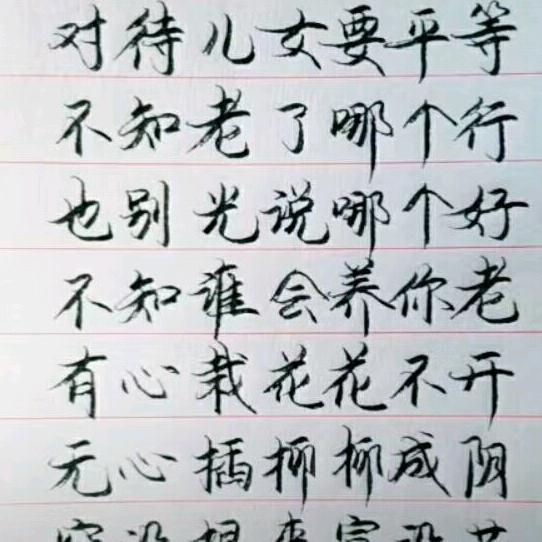 对待儿女要平等
不知老了哪个行
也别光说哪个好
不知谁会养你老
有心栽花花不开
无心插柳柳成阴